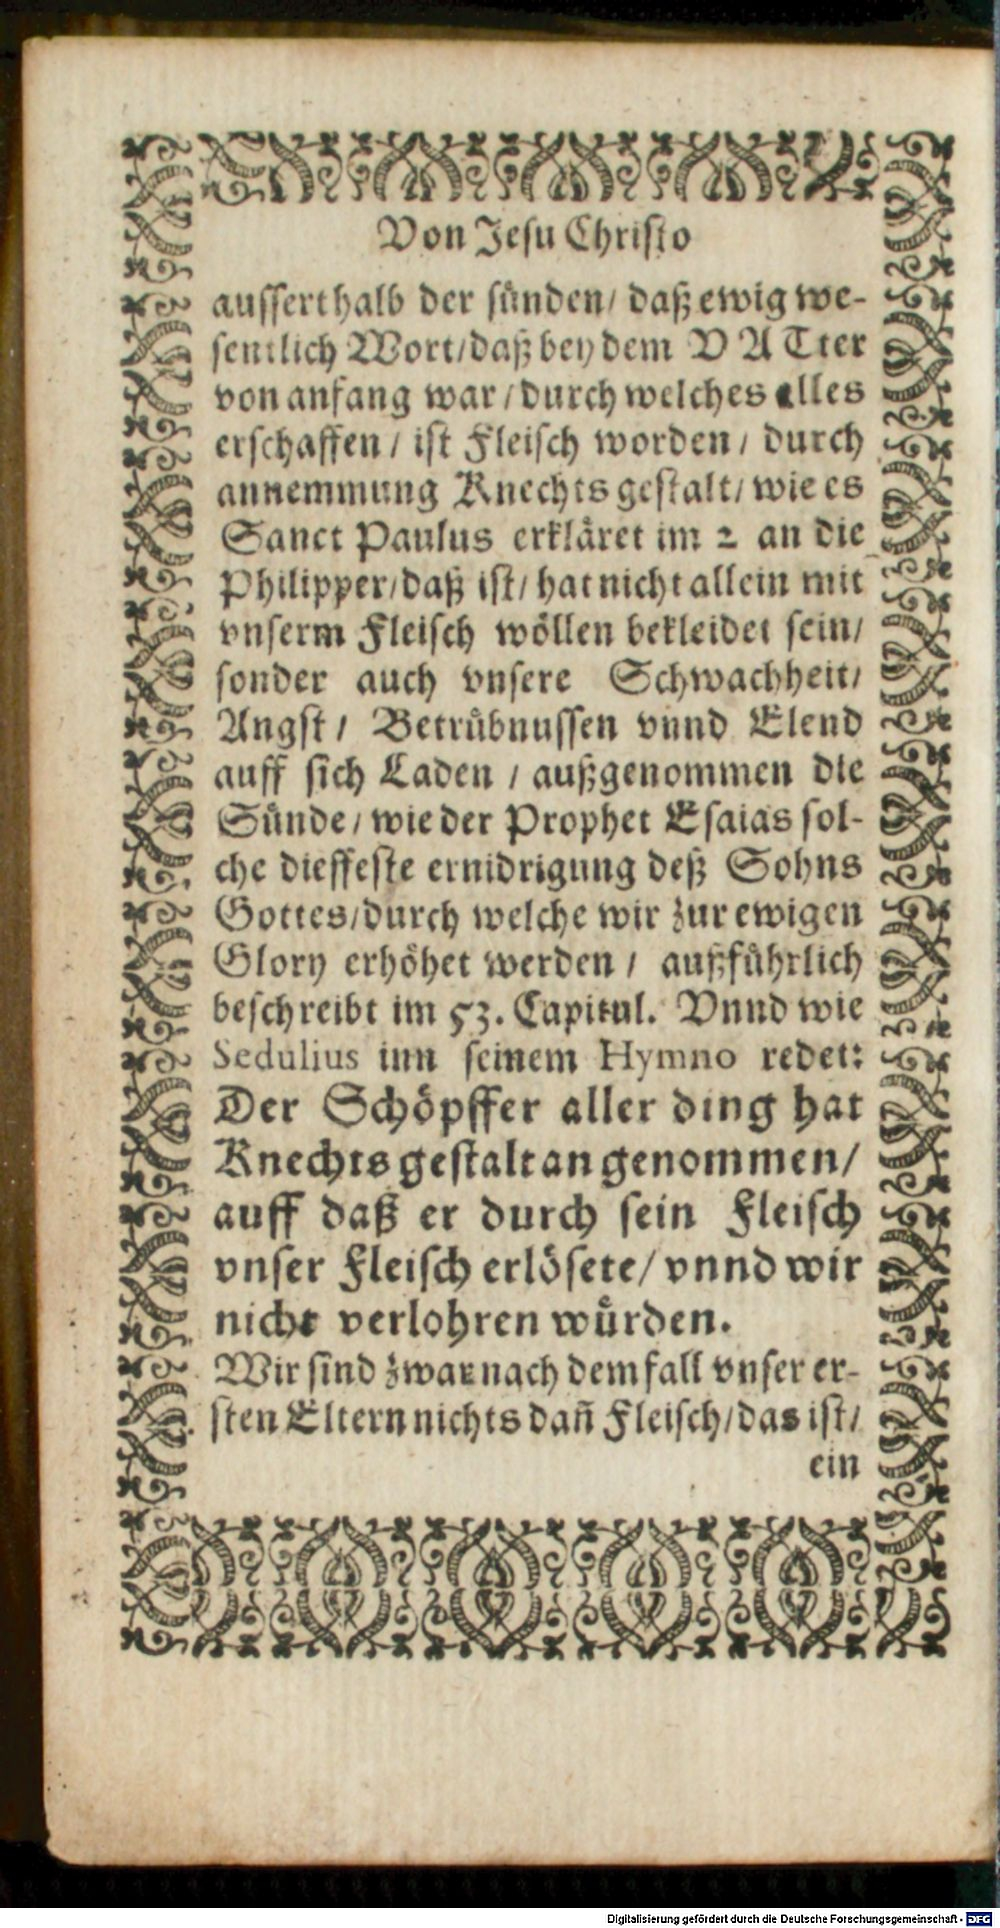 Von Jesu Christo
ausserthalb der sünden/ daß ewig we-
sentlich Wort/daß bey dem VATter
von anfang war/durch welches alles
erschaffen/ ist Fleisch worden/ durch
annemmung Knechts gestalt/ wie es
Sanct Paulus erkläret im 2 an die
Philipper/daß ist/ hat nicht allein mit
vnserm Fleisch wöllen bekleidet sein/
sonder auch vnsere Schwachheit/
Angst/ Betrübnussen vnnd Elend
auff sich Laden / außgenommen die
Sünde/ wie der Prophet Esaias sol-
che dieffeste ernidrigung deß Sohns
Gottes/durch welche wir zur ewigen
Glory erhöhet werden / außführlich
beschreibt im 53. Capitul. Vnnd wie
Sedulius inn seinem Hymno redet:
Der Schöpffer aller ding hat
Knechts gestalt angenommen/
auff daß er durch sein Fleisch
vnser Fleisch erlösete/ vnnd wir
nicht verlohren würden.
Wir sind zwar nach dem fall vnser er-
sten Eltern nichts dañ Fleisch/das ist/
ein
Digitalisierung gefördert durch die Deutsche Forschungsgemeinschaft - DFG